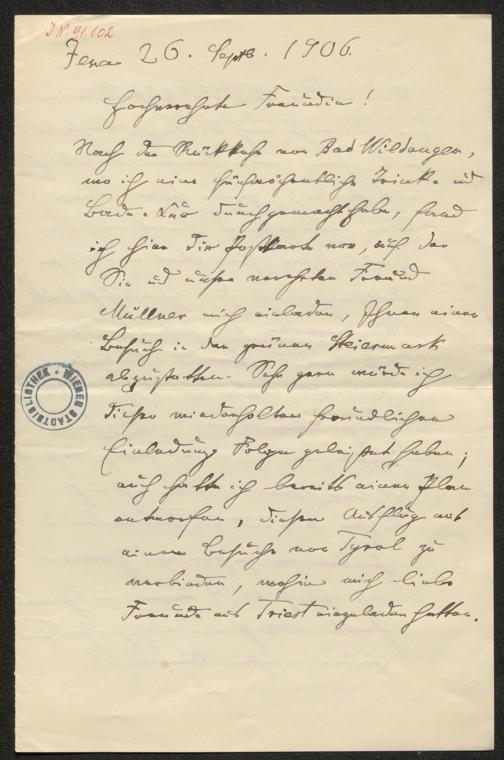 J.N. 91102
Jena 26. Septb. 1906.
Hochverehrte Freundin!
Nach der Rückkehr von Bad Wildungen,
wo ich eine fünfwöchentliche Trink- und
Bade-Kur durchgemacht habe, fand
ich hier die Postkarte vor, auf der
Sie und unser verehrter Freund
Müllner mich einladen, Ihnen einen
Besuch in der grünen Steiermark
abzustatten. Sehr gern würde ich
dieser wiederholten freundlichen
Einladung Folge geleistet haben;
auch hatte ich bereits einen Plan
entworfen, diesen Ausflug mit
einem Besuche von Tyrol zu
verbinden, wohin mich liebe
Freunde aus Triest eingeladen hatten.
WIENER STADTBIBLIOTHEK